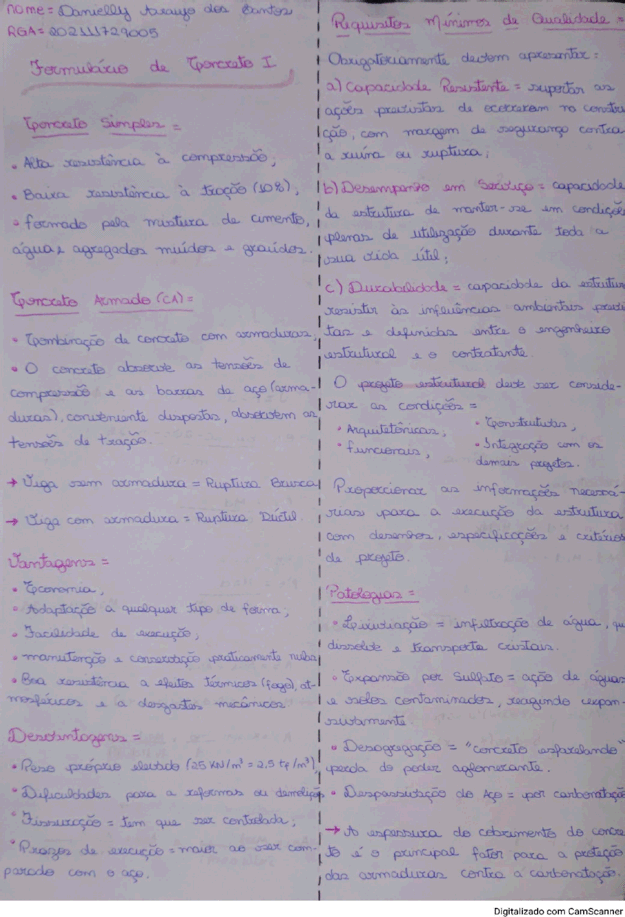 Nome = Danielly Araujo dos Santos
RGA = 202111729005
Formulário de Concreto I
Concreto Simples =
• Alta resistência à compressão;
• Baixa resistência à tração (10%);
• formado pela mistura de cimento,
água e agregados miúdos e graúdos.
Concreto Armado (CA) =
• Combinação de concreto com armaduras.
• O concreto absorve as tensões de
compressão e as barras de aço (arma-
duras), conveniente dispostas, absorvem as
tensões de tração.
→ Viga sem armadura = Ruptura Brusca
→ Viga com armadura = Ruptura Dúctil.
Vantagens =
• Economia,
• Adaptação a qualquer tipo de forma;
• Facilidade de execução,
• manutenção e conservação praticamente nulas
• Boa resistência a efeitos térmicos (fogo), at-
mosféricos e a desgastes mecânicos
Desvantagens =
• Peso próprio elevado (25 KN/m³ = 2,5 tf/m³)
• Dificuldades para a reformas ou demolição
• Fissuração = tem que ser controlada;
• Prazos de execução = maior ao ser com-
parado com o aço.
Requisitos Mínimos de Qualidade =
Obrigatoriamente devem apresentar:
a) Capacidade Resistente = suportar as
ações previstas de ocorrerem na constru-
ção, com margem de segurança contra
a ruína ou ruptura;
b) Desempenho em Serviço = capacidade
da estrutura de manter-se em condições
plenas de utilização durante toda a
sua vida útil;
c) Durabilidade = capacidade da estrutura
resistir às influências ambientais previs-
tas e definidas entre o engenheiro
estrutural e o contratante.
O projeto estrutural deve ser conside-
rar as condições =
• Arquitetônicas, • Construtivas,
• funcionais, • Integração com os
demais projetos.
Proporcionar as informações necessá-
rias para a execução da estrutura
com desenhos, especificações e critérios
de projeto.
Patologias =
• Lixiviação = infiltração de água, qu
dissolve e transporta cristais.
• Expansão por Sulfato = ação de águas
e solos contaminados, reagindo expan-
sivamente
• Desagregação = "concreto esfarelando"
perda do poder aglomerante.
• Despassivação do Aço = por carbonatação
→ A espessura do cobrimento do concre-
to é o principal fator para a proteção
das armaduras contra a carbonatação.
Digitalizado com CamScanner